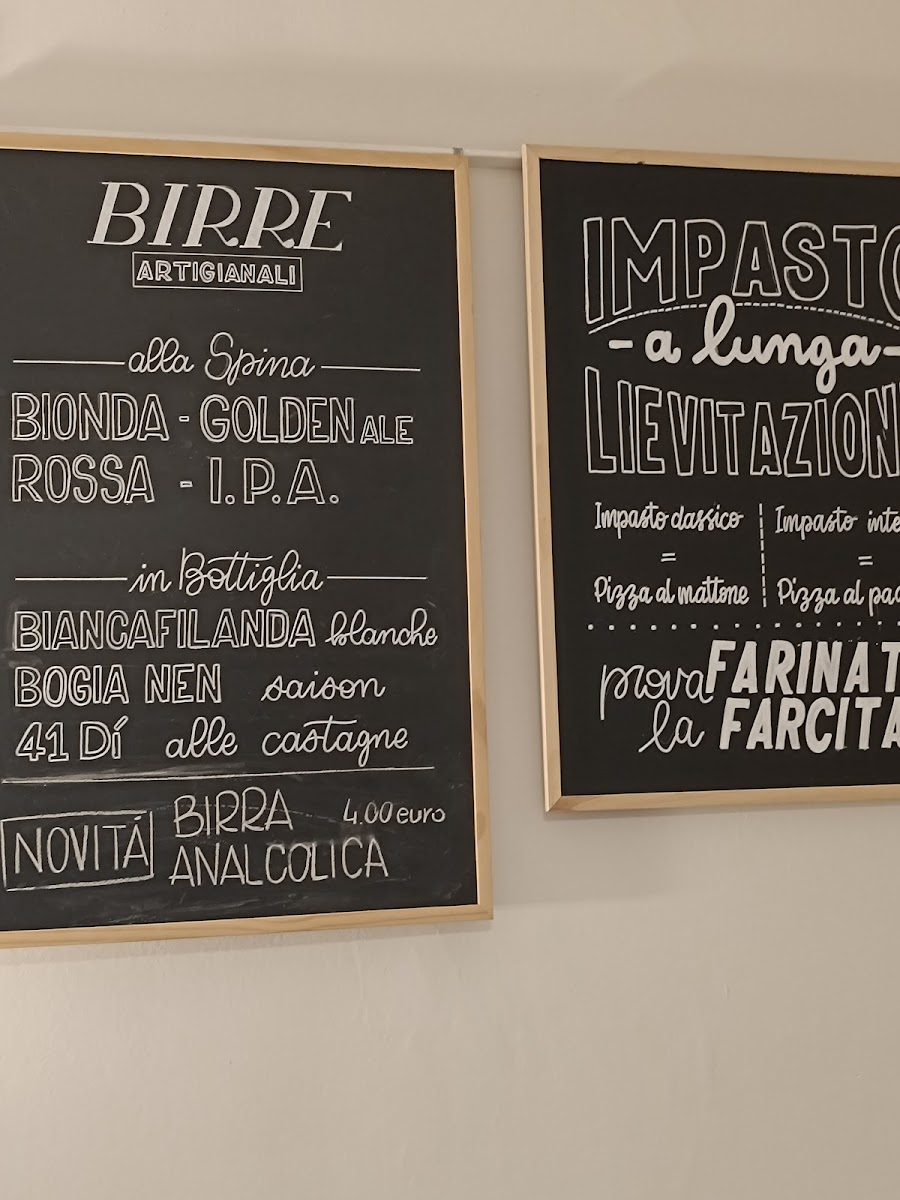 BIRRE
ARTIGIANALI
alla Spina
BIONDA - GOLDEN ALE
ROSSA - I.P.A.
in Bottiglia
BIANCAFILANDA blanche
BOGIA NEN saison
41 Dí alle castagne
NOVITÁ BIRRA 4.00 euro
ANALCOLICA
IMPASTO
- a lunga -
LIEVITAZION
Impasto classico | Impasto inte
= | =
Pizza al mattone | Pizza al pad
prova FARINAT
la FARCITA